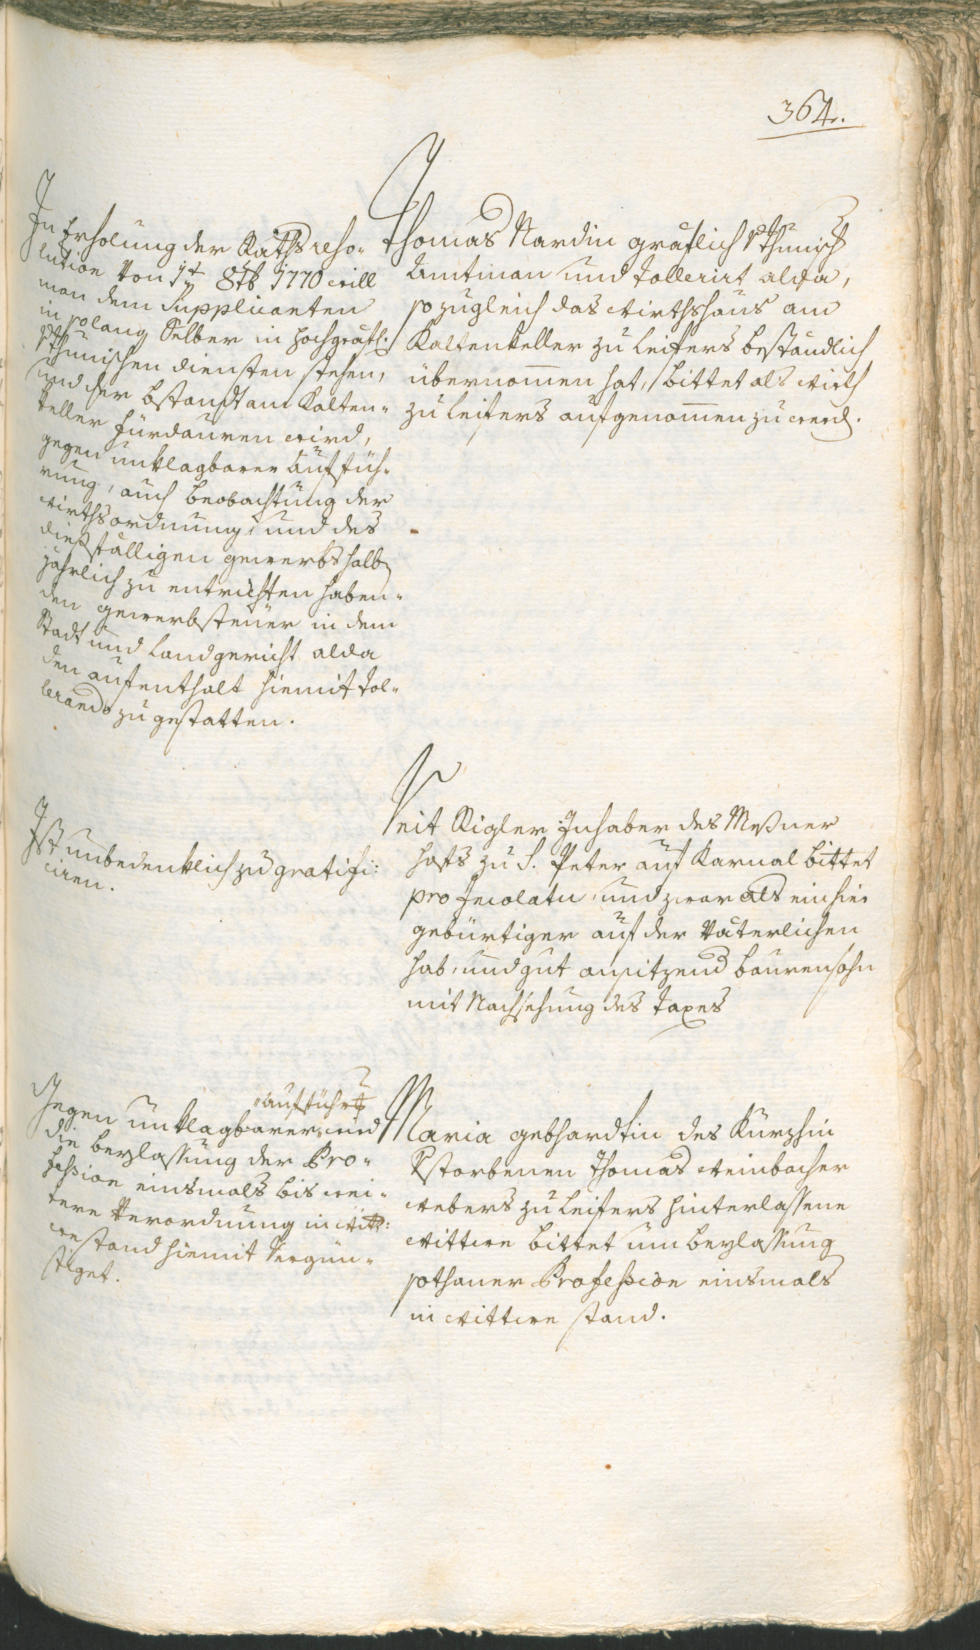 364.
In Erholung der Raths reso-
lution von 1t 8tb 1770 will
man dem Supplicanten
in solang Selber in hochgräfl:
Thunischen diensten stehen,
und der bstandt am Kalten-
keller fürdauren wird,
gegen unklagbarer auffüh-
rung, auch beobachtung der
wirthsordnung, und des
dießfälligen gewerbs halb
jährlich zu entrichten haben-
den gewerbsteuer in dem
Stadt und Landgericht alda
den aufenthalt hiemit tol-
lerando zu gestatten.
Thomas Nardin gräflich Thunisch
Amtman und tollerirt alda,
so zugleich das wirthshaus am
Kaltenkeller zu Leifers beständlich
übernomen hat, bittet als wirth
zu Leifers aufgenomen zu werd.
Ist unbedenklich zu gratifi-
ciren.
Veit Rigler Inhaber des Meßner
hofs zu S. Peter auf Karnal bittet
pro Incolatu und zwar als ein hier
gebürtiger auf der väterlichen
hab und gut ansitzend baurensohn
mit Nachsehung des taxes
Gegen unklagbarer aufführung wird
die beylassung der Pro-
feßion einsmals bis wei-
tere Verordnung in wit-
westand hiemit Vergün-
stiget.
Maria gebhardtin des Kürzhin
Vstorbenen Thomas weinbacher
webers zu Leifers hinterlassene
wittwe bittet um beylassung
sothaner Profeßion einsmals
in wittwe stand.